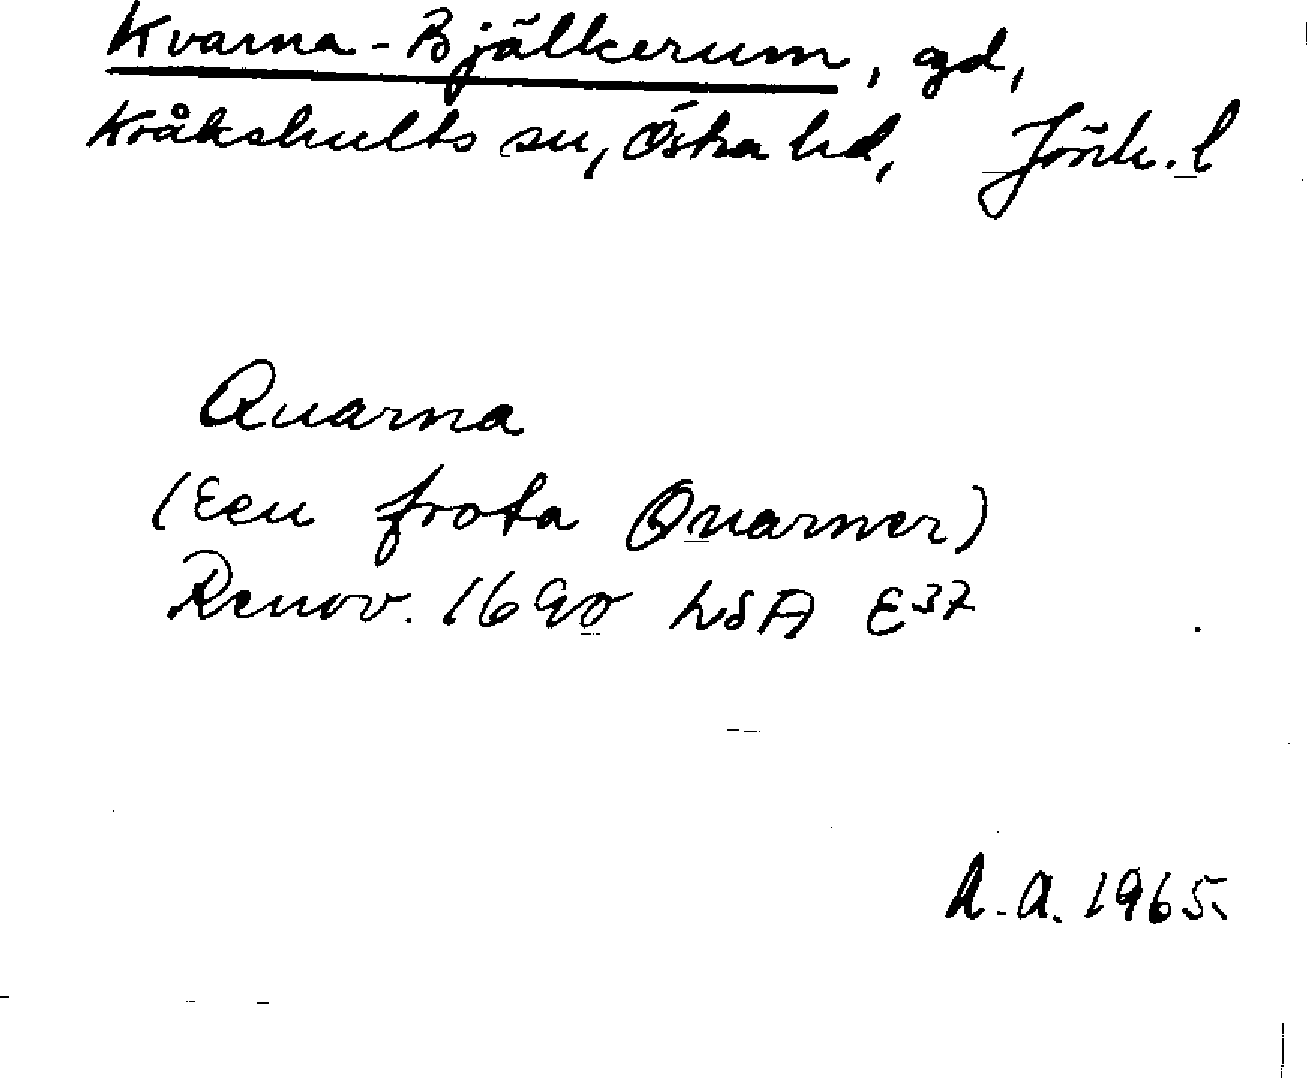 Kvarna-Bjälkerum, gd,
Kråkshults sn, Östra hd, Jönk. l
Quarna
(Een frota Quarner)
Renov. 1690 LSA E37
A.A. 1965